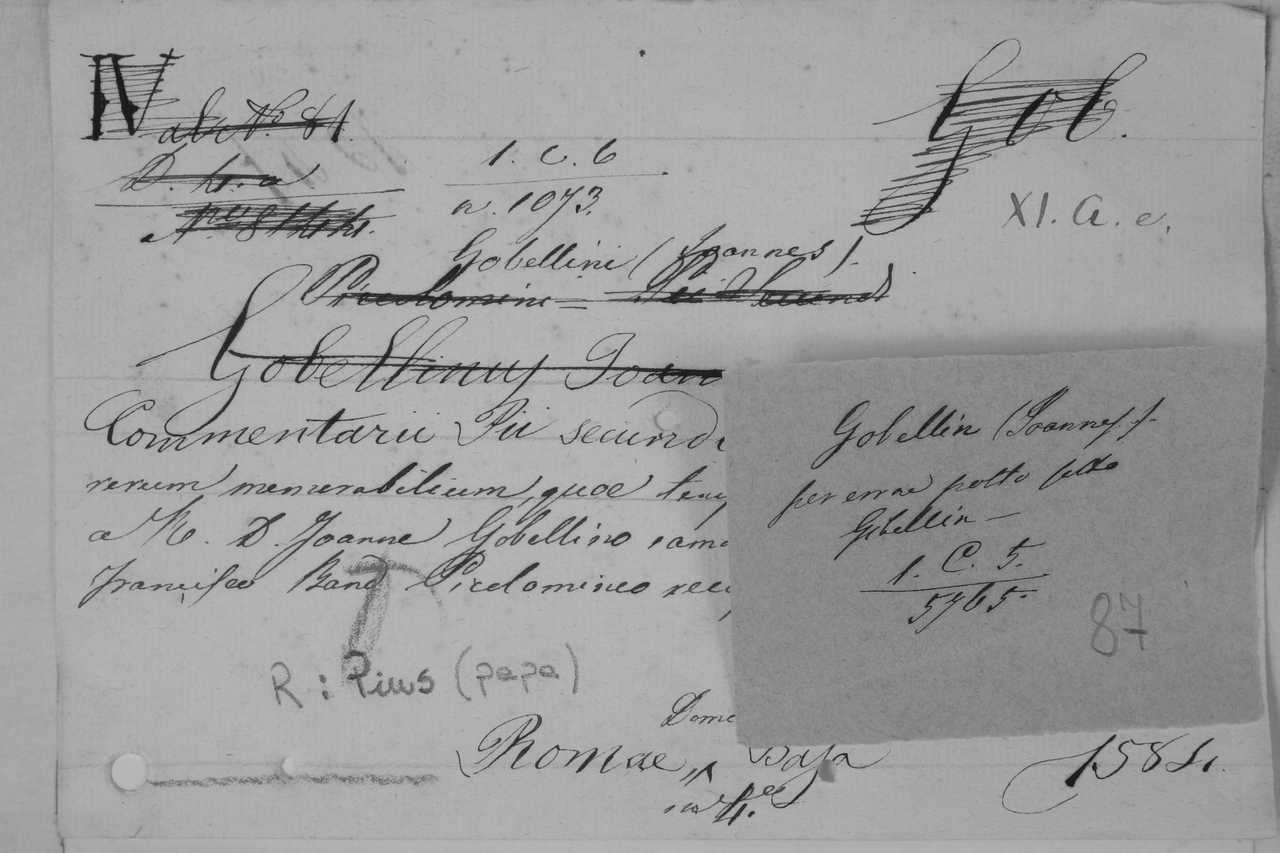 IV
abc No. 81.
Gob.
D. 4. a
1. C. 6
n. 1073.
XI. A. e.
Gobellini (Joannes).
Picolomini = Pii Secundi
Gobellinus Joan
Commentarii Pii secundi
rerum memorabilium, quae
a R. D. Joanne Gobellino
Francisco Band Picolomineo
R: Pius (papa)
Romae, Basa 1584.
in 4.º
Gobellin (Joannes).
per errore posto sotto
Gibellin —
1. C. 5.
5765.
87